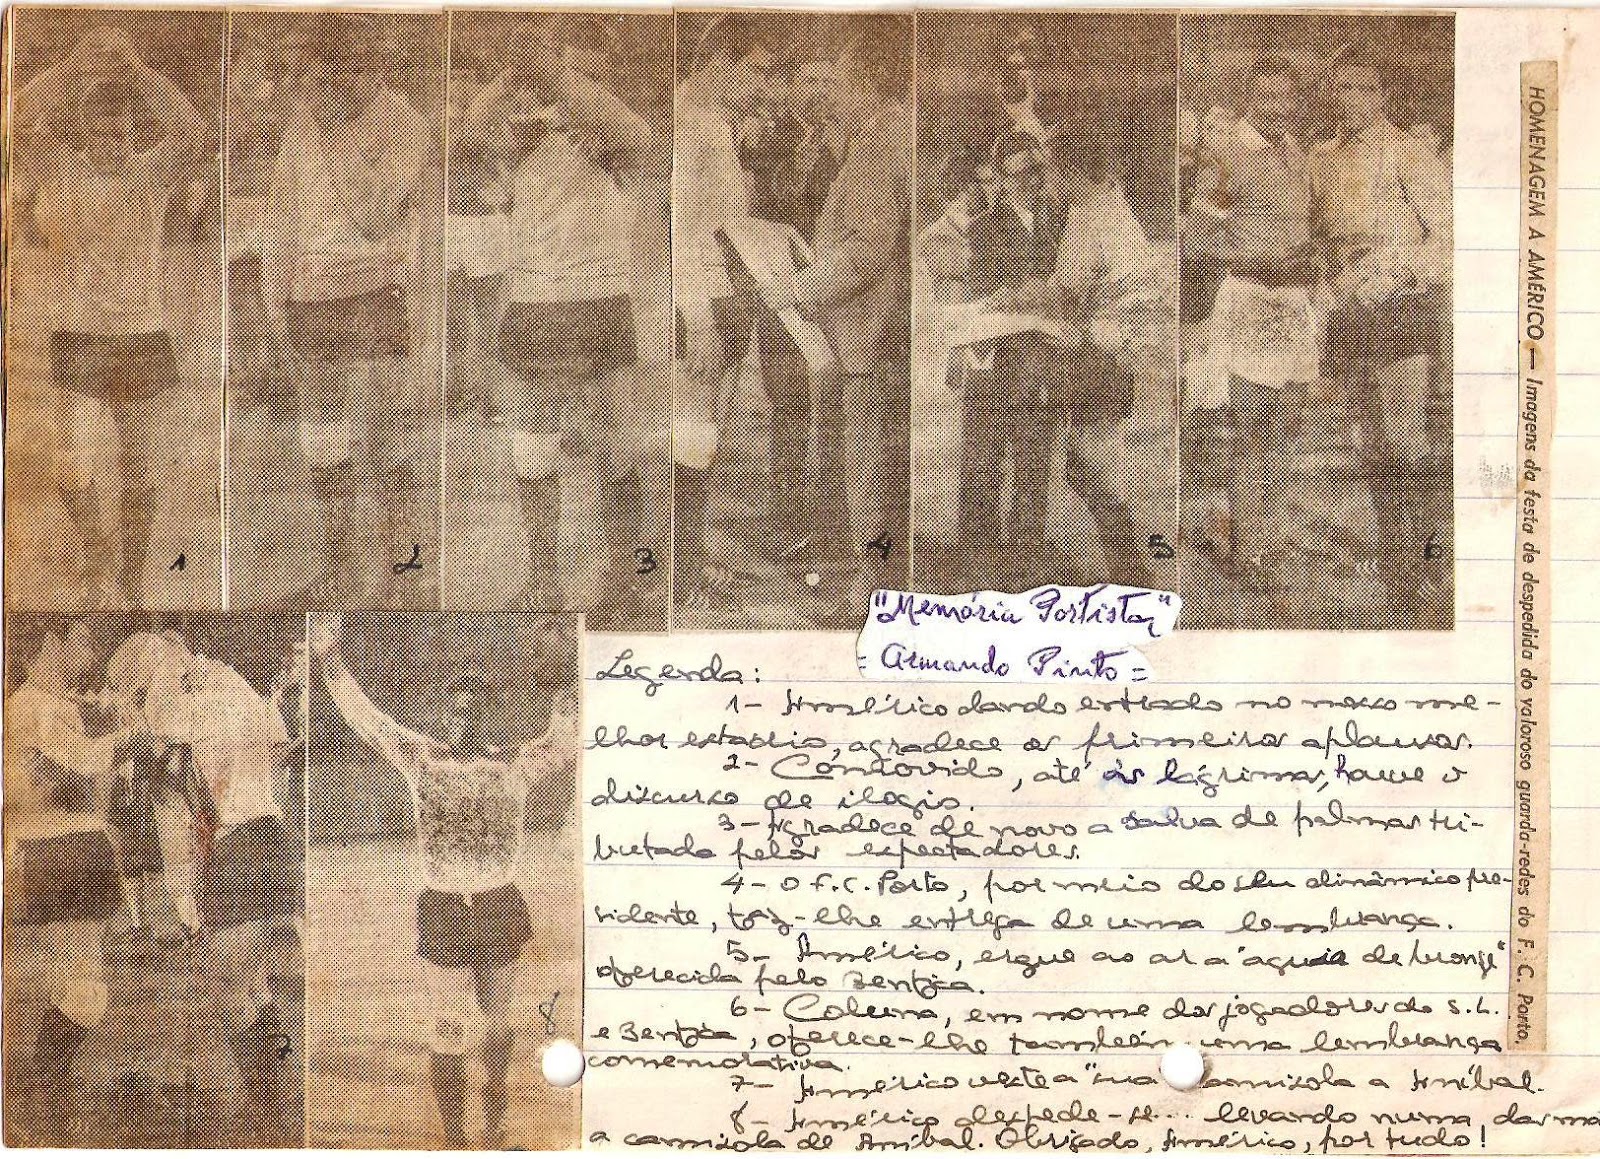 1
2
3
4
5
6
7
8
HOMENAGEM A AMÉRICO — Imagens da festa de despedida do valoroso guarda-redes do F. C. Porto.
"Memória Portista"
= Armando Pinto =
Legenda:
1- Américo dando entrada no nosso me-
lhor estadio, agradece os primeiros aplausos.
2- Comovido, até às lágrimas, houve o
discurso de ilogio.
3- Agradece de novo a salva de palmas tri-
butada pelos espectadores.
4- O F.C. Porto, por meio do seu dinâmico pre-
sidente, faz-lhe entrega de uma lembrança.
5- Américo, ergue ao ar a "aguia de bronze"
oferecida pelo Benfica.
6- Coluna, em nome dos jogadores do S.L.
e Benfica, oferece-lhe também uma lembrança
comemorativa.
7- Américo veste a "sua camisola a Aníbal.
8- Américo despede-se... levando numa das mã
a camisola de Aníbal. Obrigado, Américo, por tudo!